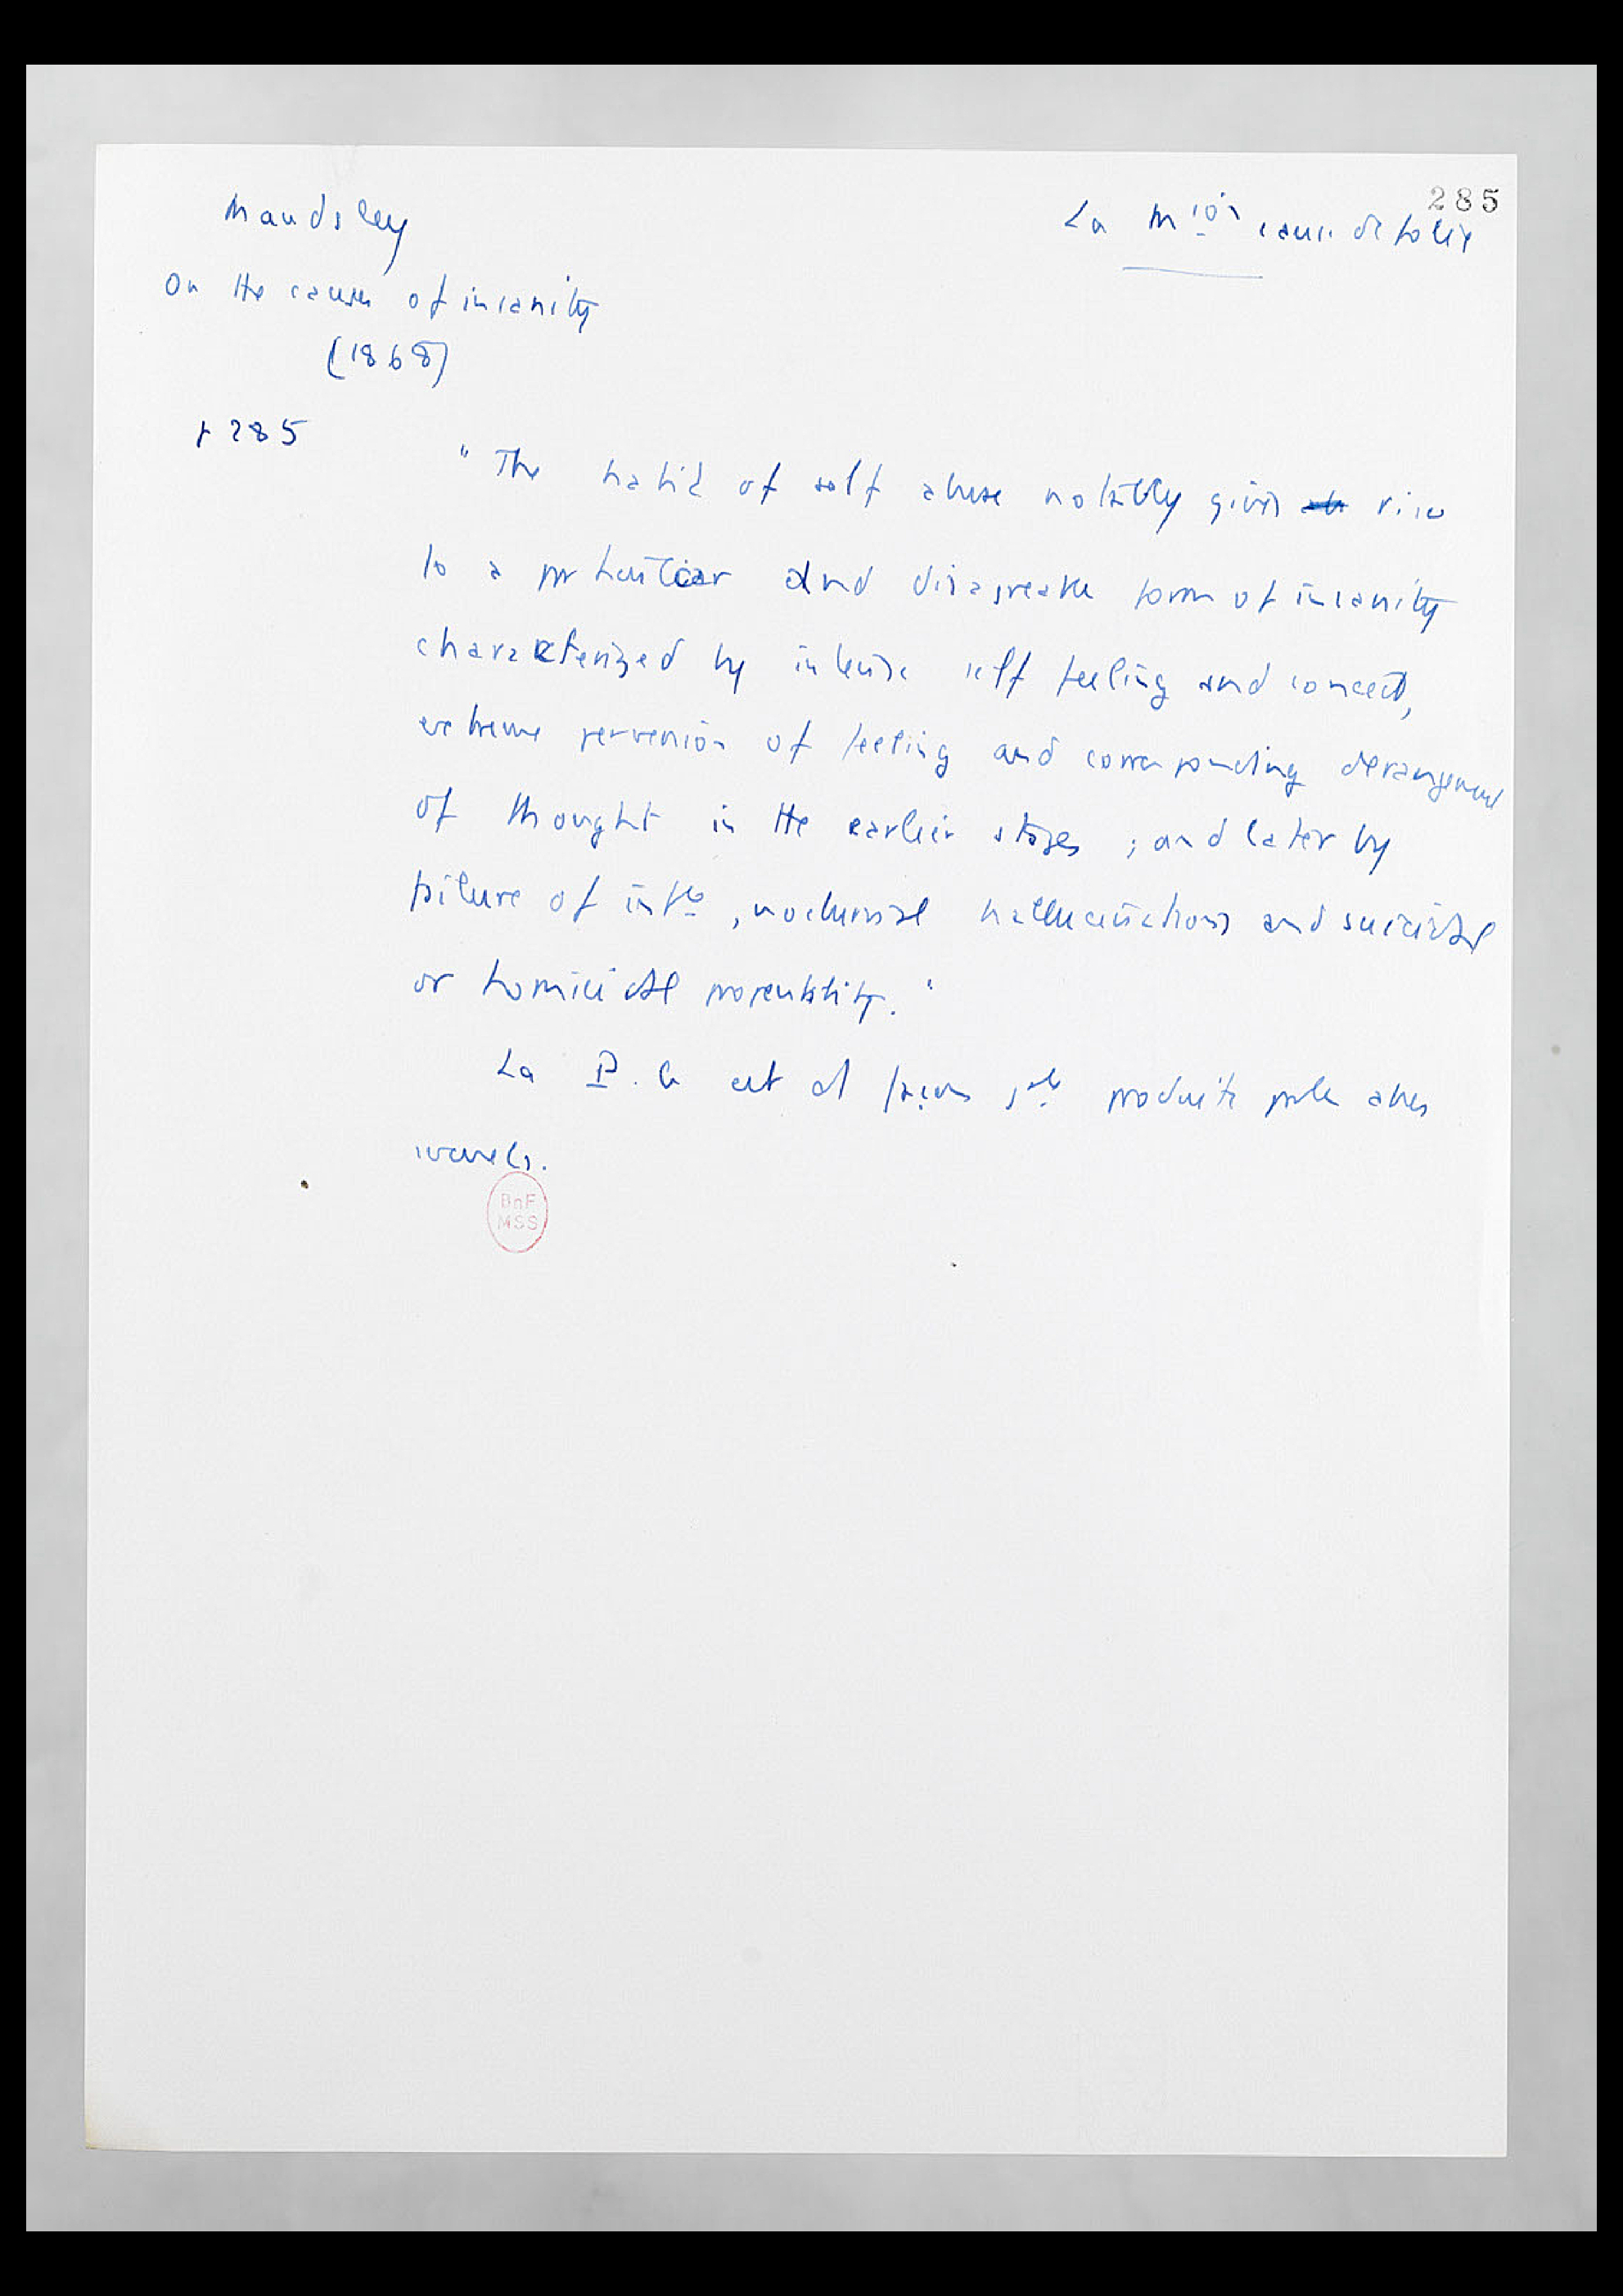 285
Maudsley
La M^ion cause de folie
On the causes of insanity
(1868)
p 285
"The habit of self abuse notably gives rise
to a particular and disagreable form of insanity
characterized by intense self feeling and conceit,
extreme perversion of feeling and corresponding derangement
of thought in the earlier stages ; and later by
failure of int^ce, nocturnal hallucinations and suicidal
or homicidal propensity."
La P. G est d façon g^ale produite par les abus
sexuels.
BnF
MSS